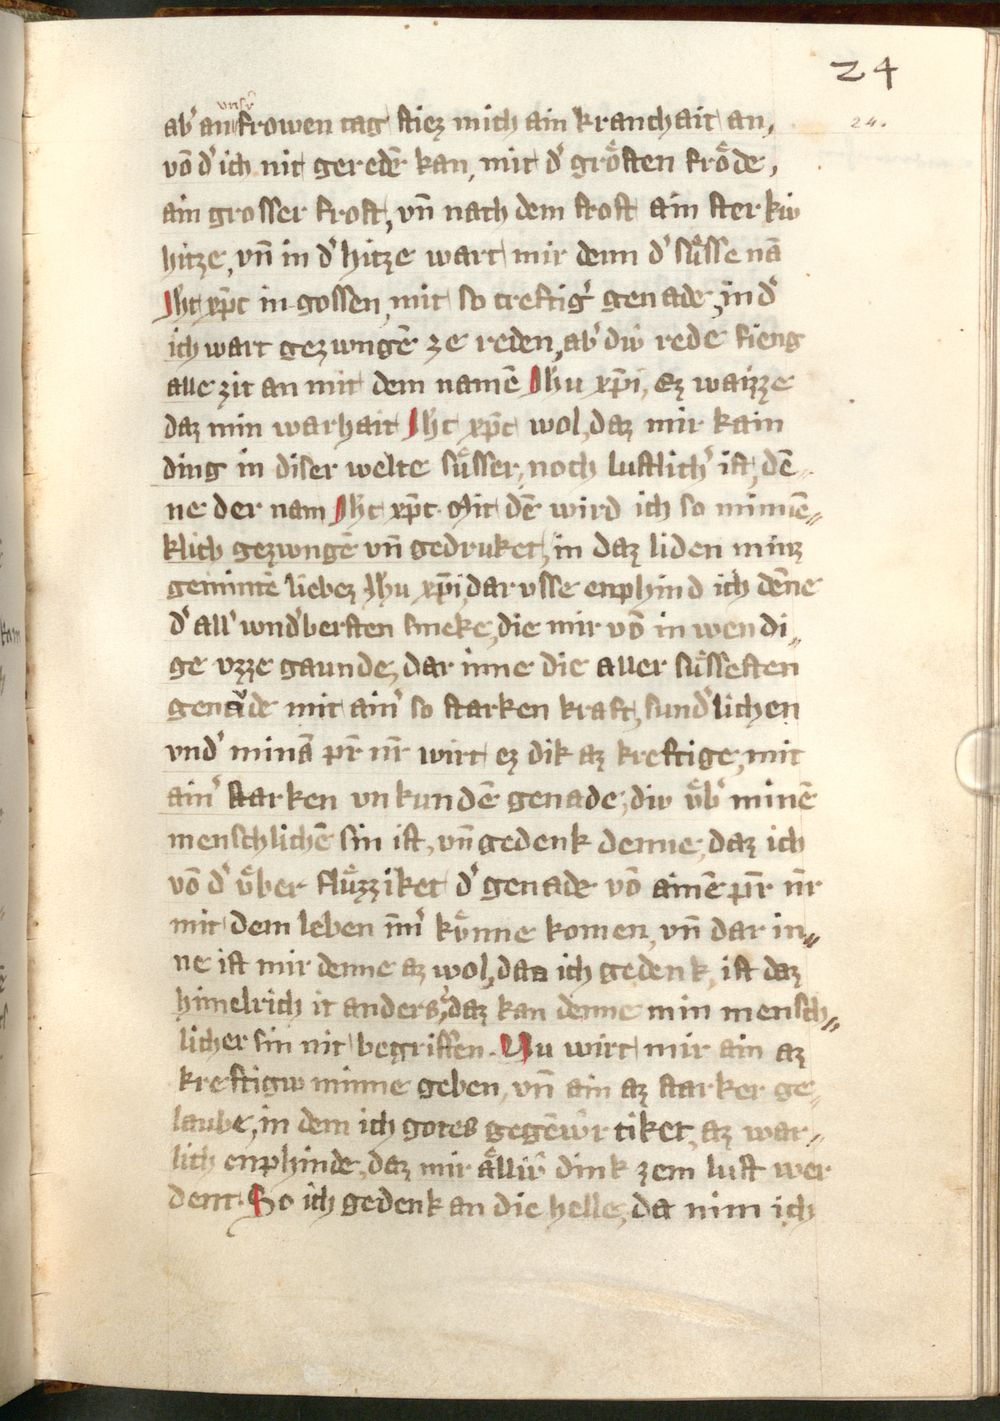 24
24.
vnsr̄
ab' an frowen tag stiez mich ain kranchait an,
vō d' ich nit geredē kan, mit d' grôsten frôde,
ain grosser frost, vn̄ nach dem frost ain sterkiv
hitze, vn̄ in d' hitze wart mir denn d' sůsse nā
Jhc xp̄c in gossen, mit so creftig' genade, in d'
ich wart gezwngē ze reden, ab' div rede fieng
alle zit an mit dem namē Jhu xp̄i, Ez waizze
daz min warhait Jhc xp̄c wol, daz mir kain
ding in diser welte sůsser, noch lustlich' ist, dē-
ne der nam Jhc xp̄c. Mit dē wird ich so minnē-
klich gezwngē vn̄ gedruket, in daz liden minz
gemintē liebez Jhu xp̄i, dar vsse enphind ich dēne
d' all' wnd'bersten smeke, die mir vō in wendi-
ge vzze gaunde, dar inne die aller sůssesten
genǎde mit ain' so starken kraft, sund'lichen
vnd' minā pr̄ nr̄ wirt ez dik az kreftige, mit
ain' starken vnkundē genade, div v̊b' minē
menschlichē sin ist, vn̄ gedenk denne, daz ich
vō d' v̊ber flůzziket d' genade vō ainē pr̄ nr̄
mit dem leben im̄' kônne komen, vn̄ dar in-
ne ist mir denne az wol, daz ich gedenk, ist daz
himelrich it anders, daz kan denne min mensch-
licher sin nit begriffen. Nu wirt mir ain az
kreftigiv minne geben, vn̄ ain az starker ge-
laube, in dem ich gotes gegēwr̄tiket, az war-
lich enphinde, daz mir ålliv dink zem lust wer
dent. So ich gedenk an die helle, da nim ich